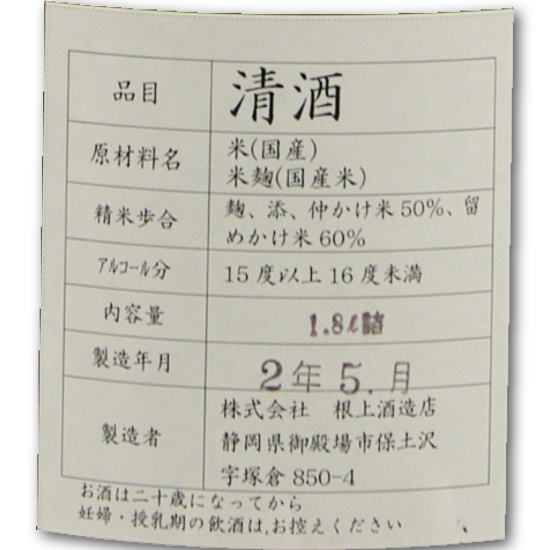 品目 清酒
原材料名 米(国産)
米麹(国産米)
精米歩合 麹、添、仲かけ米50%、留
めかけ米60%
アルコール分 15度以上16度未満
内容量 1.8ℓ詰
製造年月 2年5.月
製造者 株式会社 根上酒造店
静岡県御殿場市保土沢
字塚倉850-4
お酒は二十歳になってから
妊婦・授乳期の飲酒は、お控えください